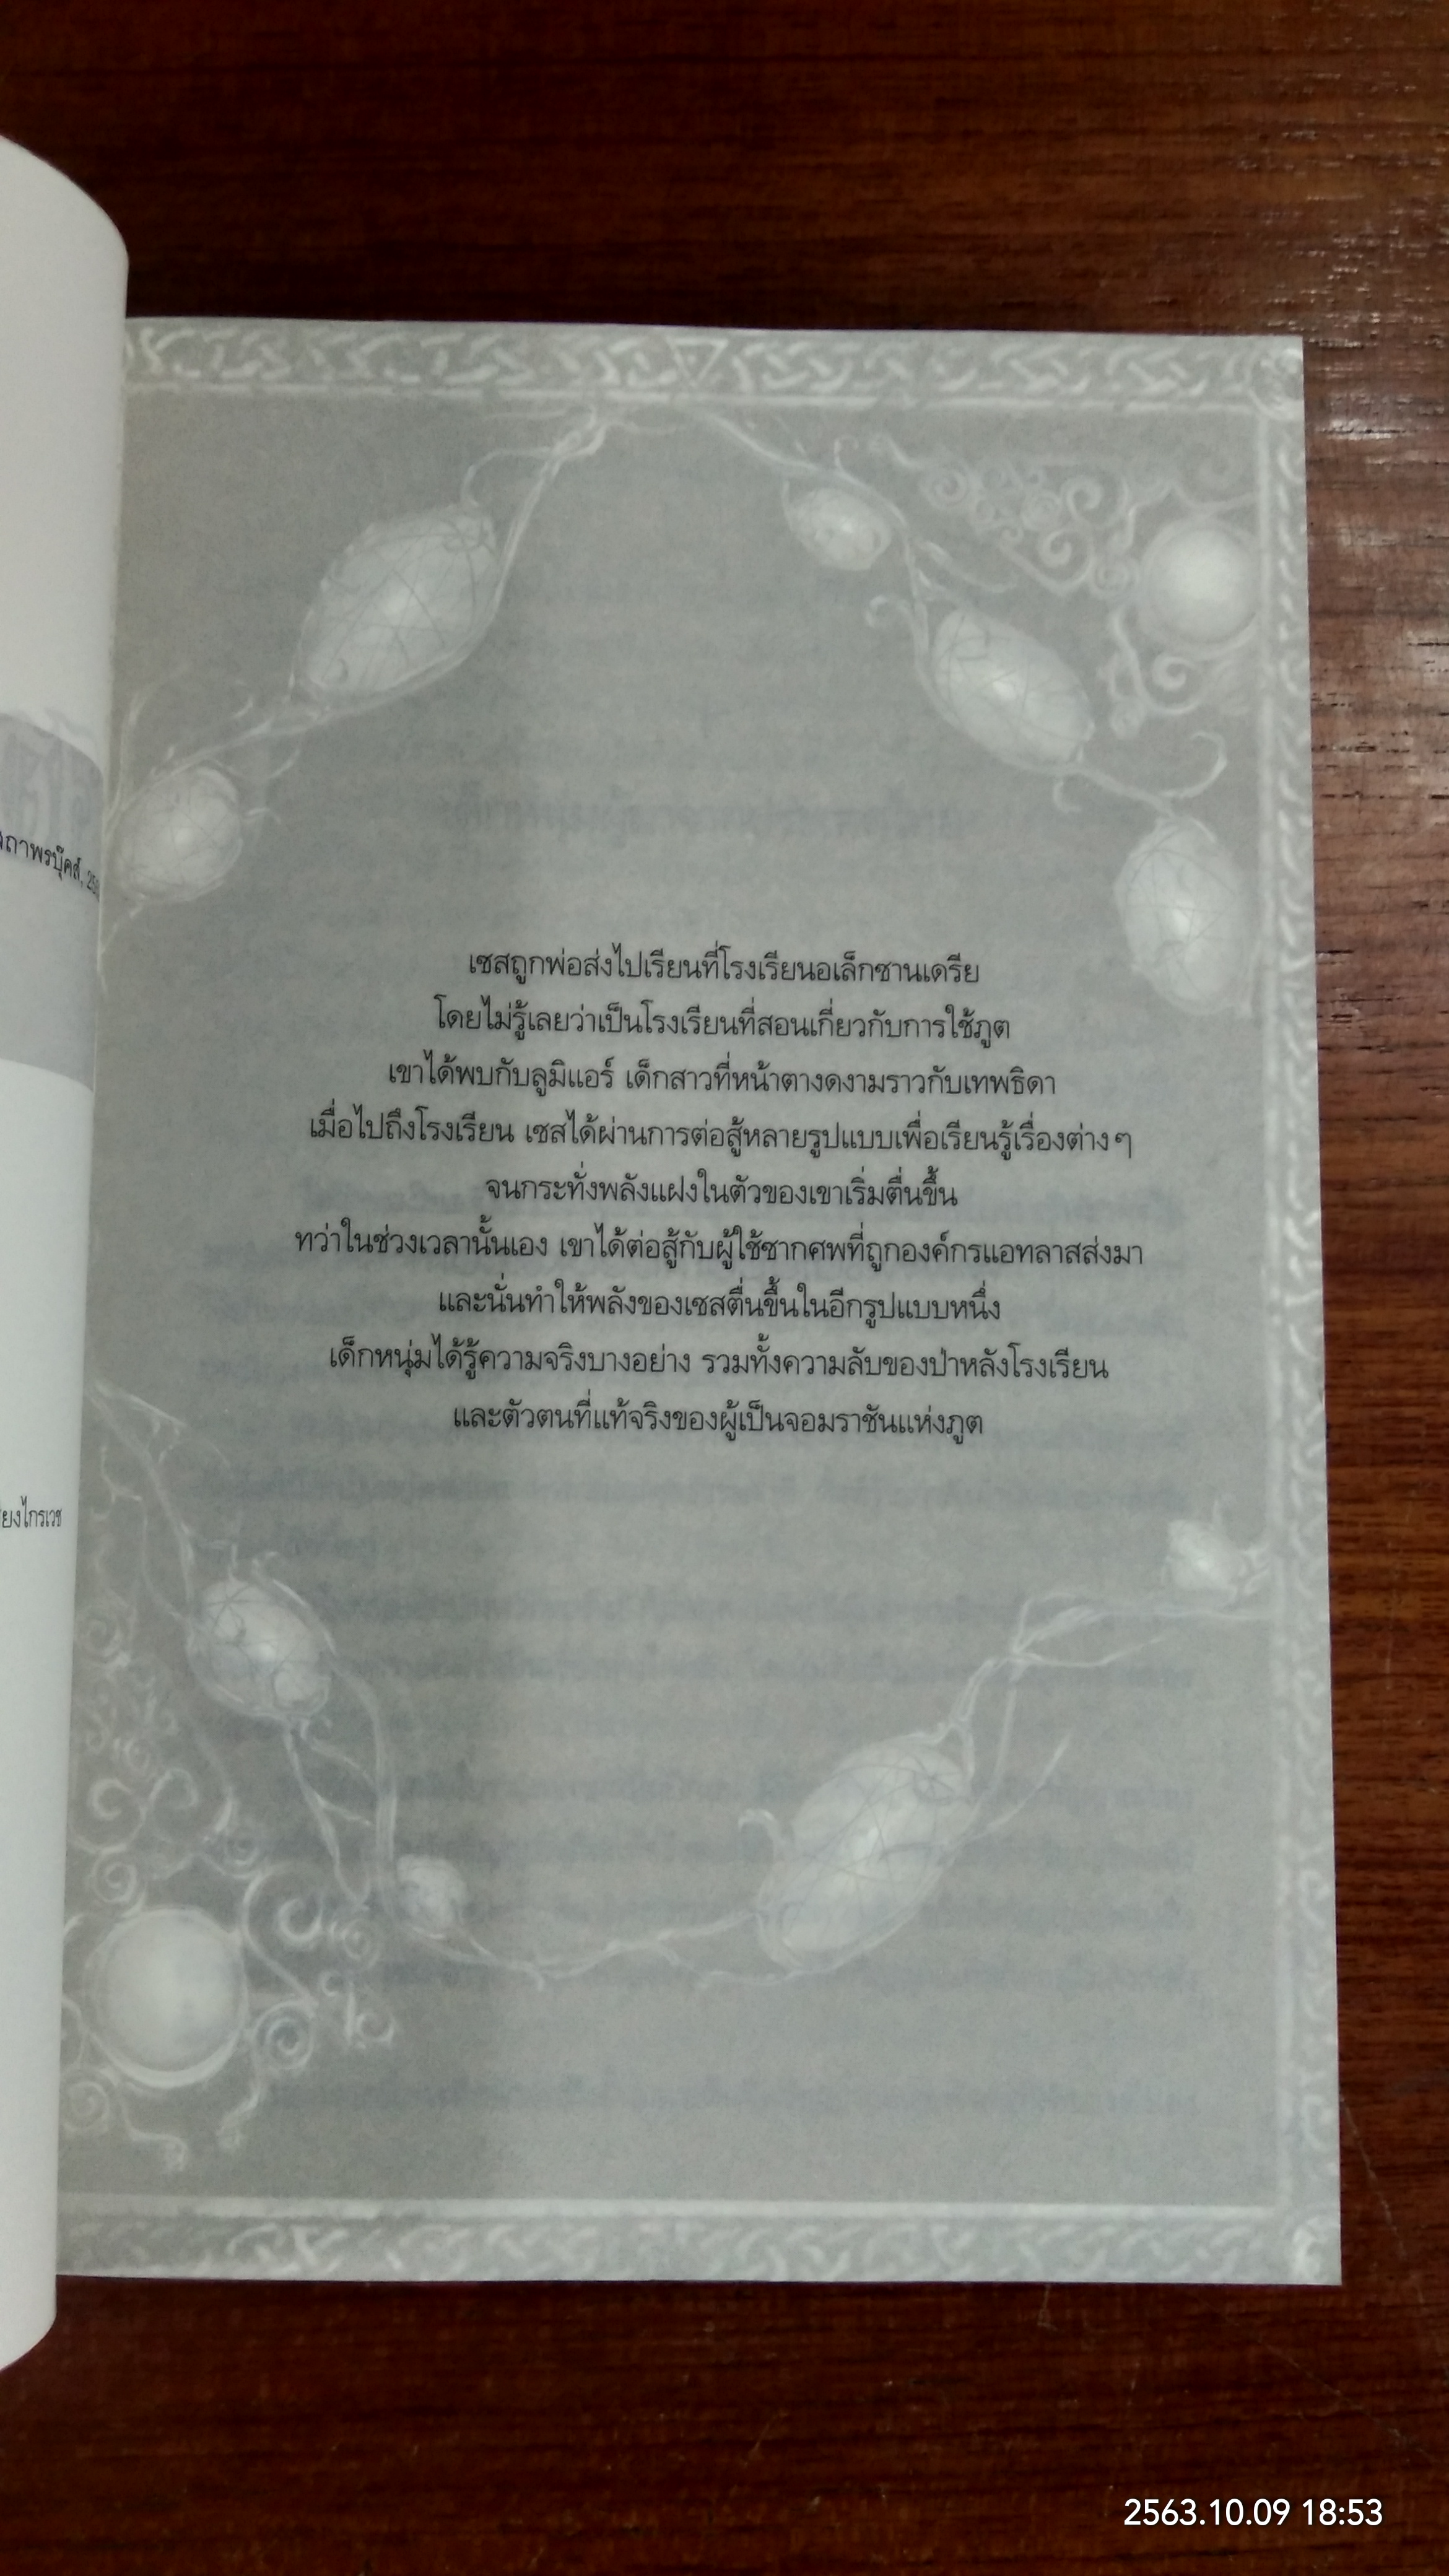 สถาพรบุ๊คส์, 25
ยงไกรเวช
เซสถูกพ่อส่งไปเรียนที่โรงเรียนอเล็กซานเดรีย
โดยไม่รู้เลยว่าเป็นโรงเรียนที่สอนเกี่ยวกับการใช้ภูต
เขาได้พบกับลูมิแอร์ เด็กสาวที่หน้าตางดงามราวกับเทพธิดา
เมื่อไปถึงโรงเรียน เซสได้ผ่านการต่อสู้หลายรูปแบบเพื่อเรียนรู้เรื่องต่างๆ
จนกระทั่งพลังแฝงในตัวของเขาเริ่มตื่นขึ้น
ทว่าในช่วงเวลานั้นเอง เขาได้ต่อสู้กับผู้ใช้ซากศพที่ถูกองค์กรแอทลาสส่งมา
และนั่นทำให้พลังของเซสตื่นขึ้นในอีกรูปแบบหนึ่ง
เด็กหนุ่มได้รู้ความจริงบางอย่าง รวมทั้งความลับของป่าหลังโรงเรียน
และตัวตนที่แท้จริงของผู้เป็นจอมราชันแห่งภูต
2563.10.09 18:53